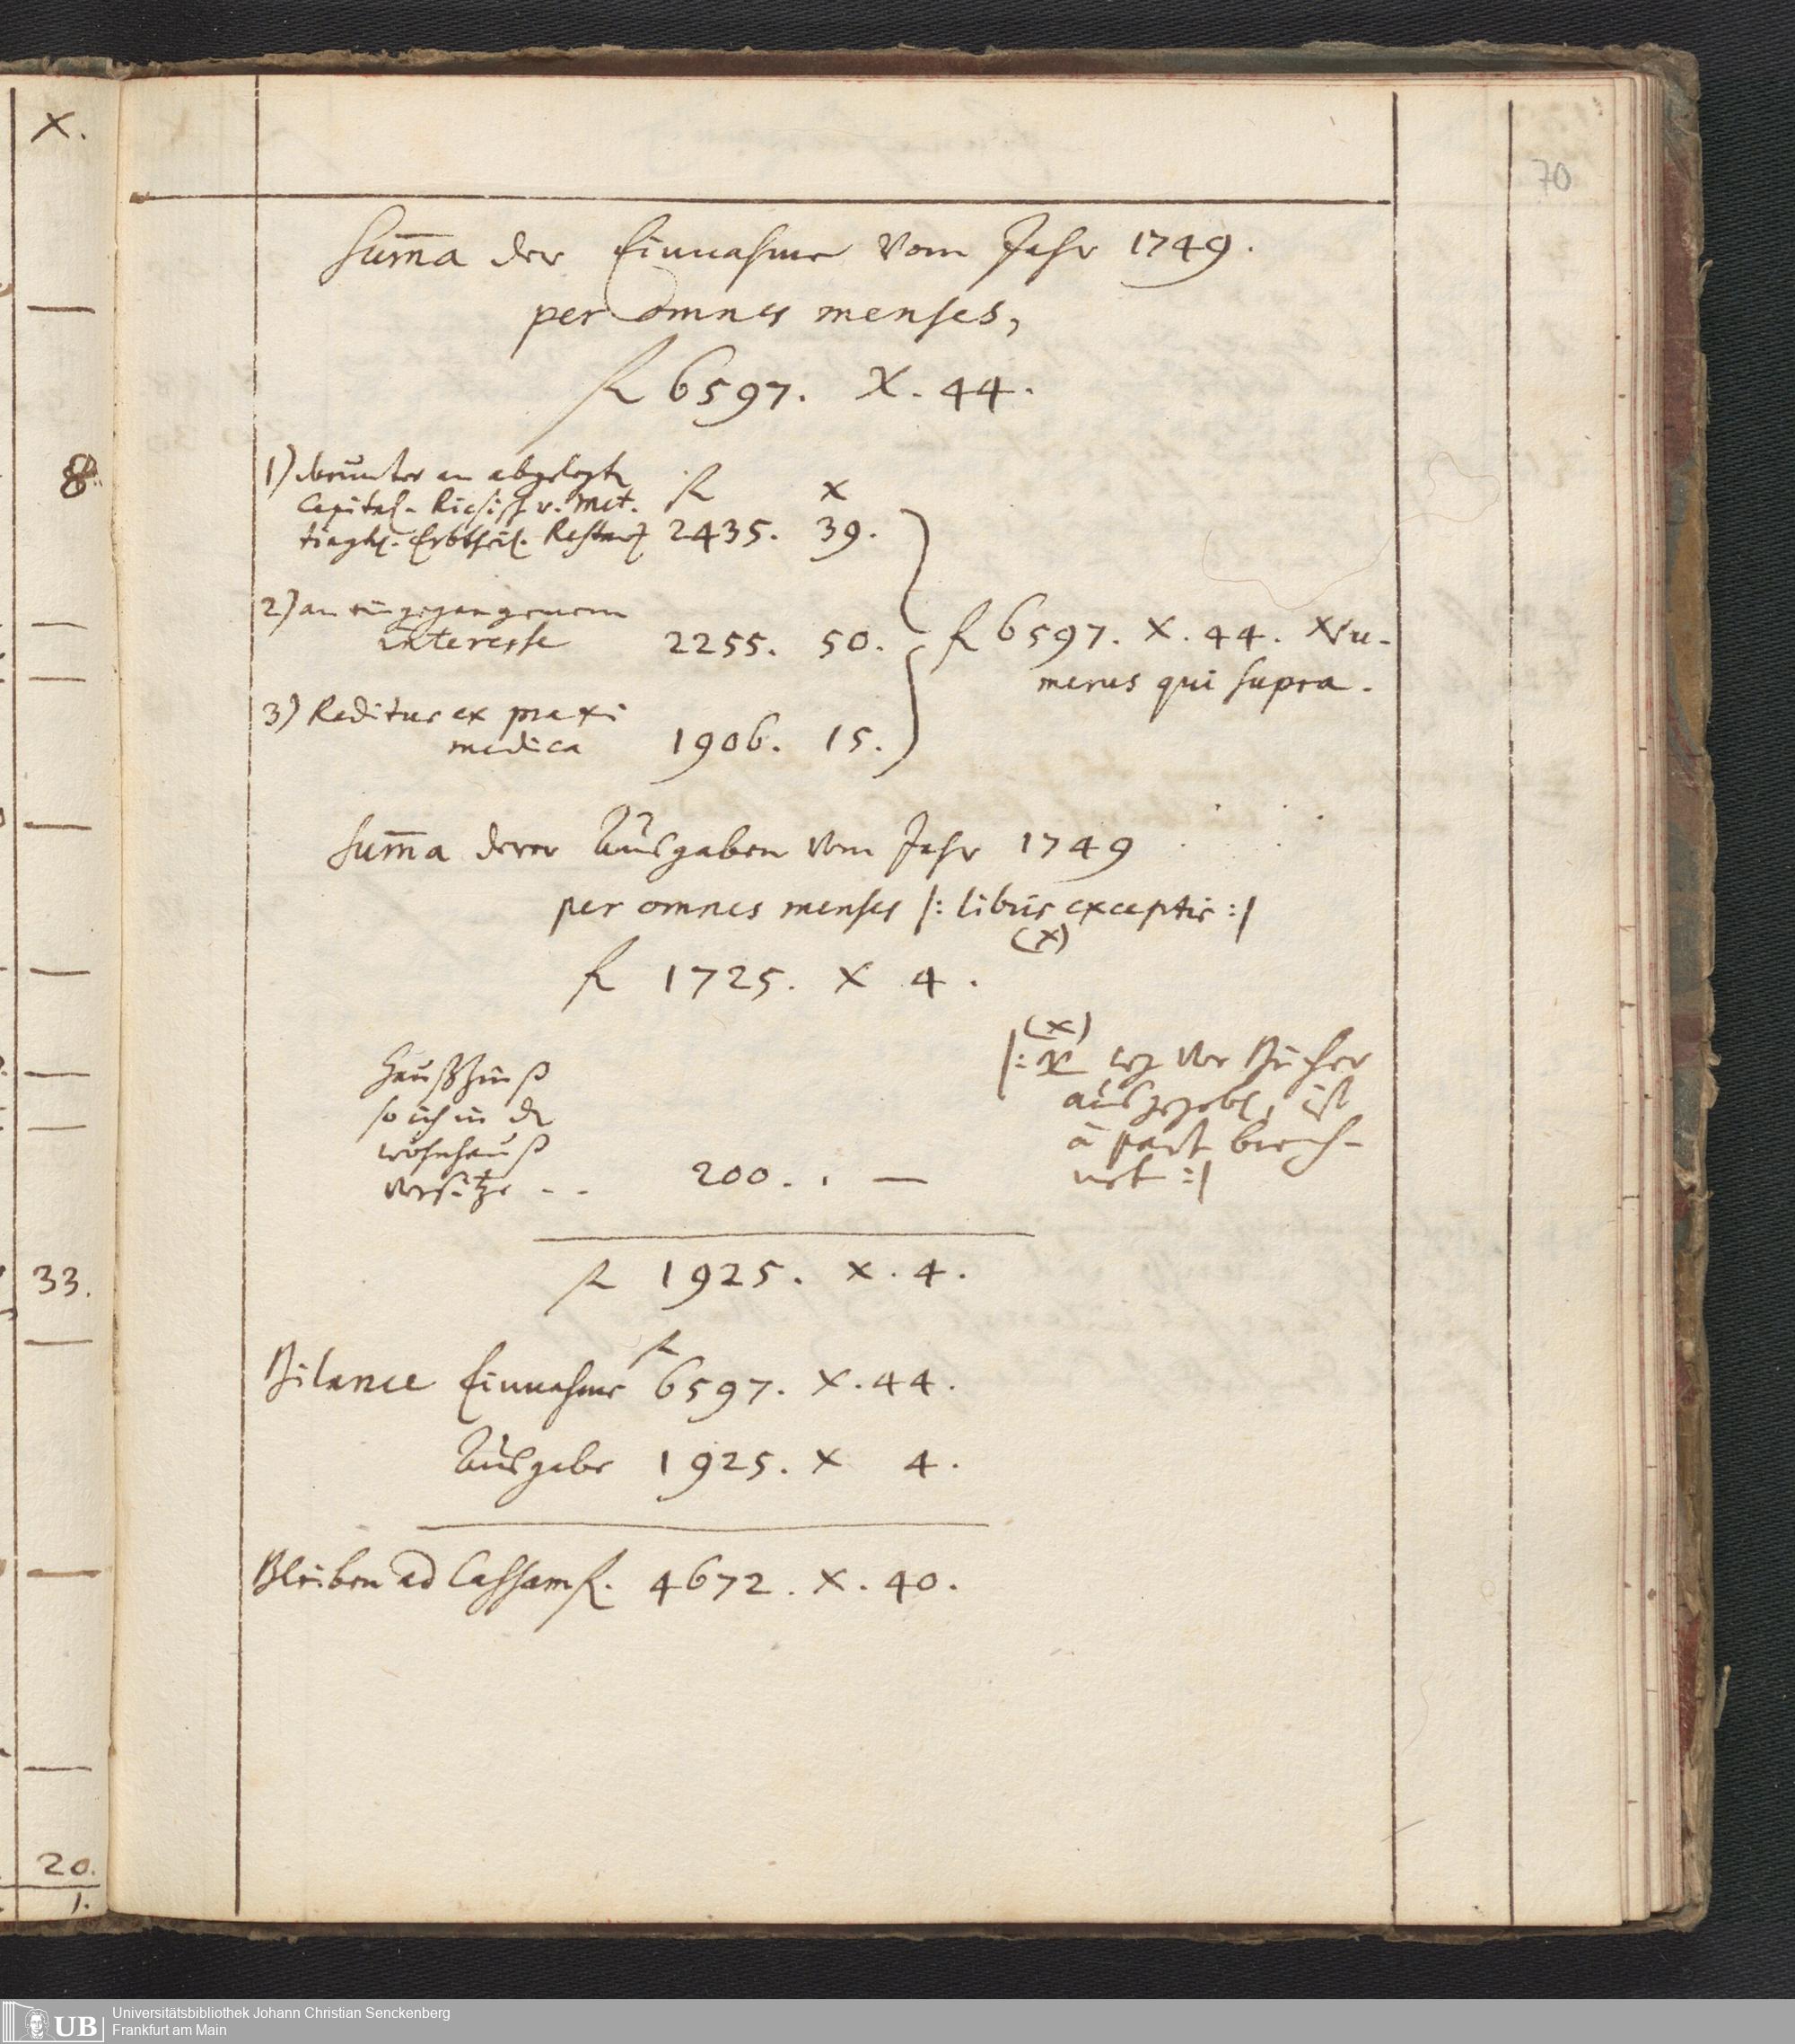 X.
8.
33.
20.
1.
70
Sum̄a der Einnahme vom Jahr 1749.
per omnes menses,
fl 6597. X. 44.
1) darunter an abgelegt
Capital- v. Met. fl x
Erbtheil. 2435. 39.
2) an eingegangenem
interesse 2255. 50. fl 6597. X. 44. Nu-
merus qui supra.
3) Reditus ex praxi
medica 1906. 15.
Sum̄a derer Ausgaben vom Jahr 1749
per omnes menses |: libris exceptis :|
(x)
fl 1725. X 4.
(x)
Haußzinß
|: vor Bücher
so ich in
ausgegeben, ist
wohnhauß
à part berech-
versitze - - 200. . —
net :|
fl 1925. x. 4.
Bilance Einnahme fl 6597. X. 44.
Ausgabe 1925. x 4.
Bleiben ad Cassam fl. 4672. X. 40.
UB
Universitätsbibliothek Johann Christian Senckenberg
Frankfurt am Main